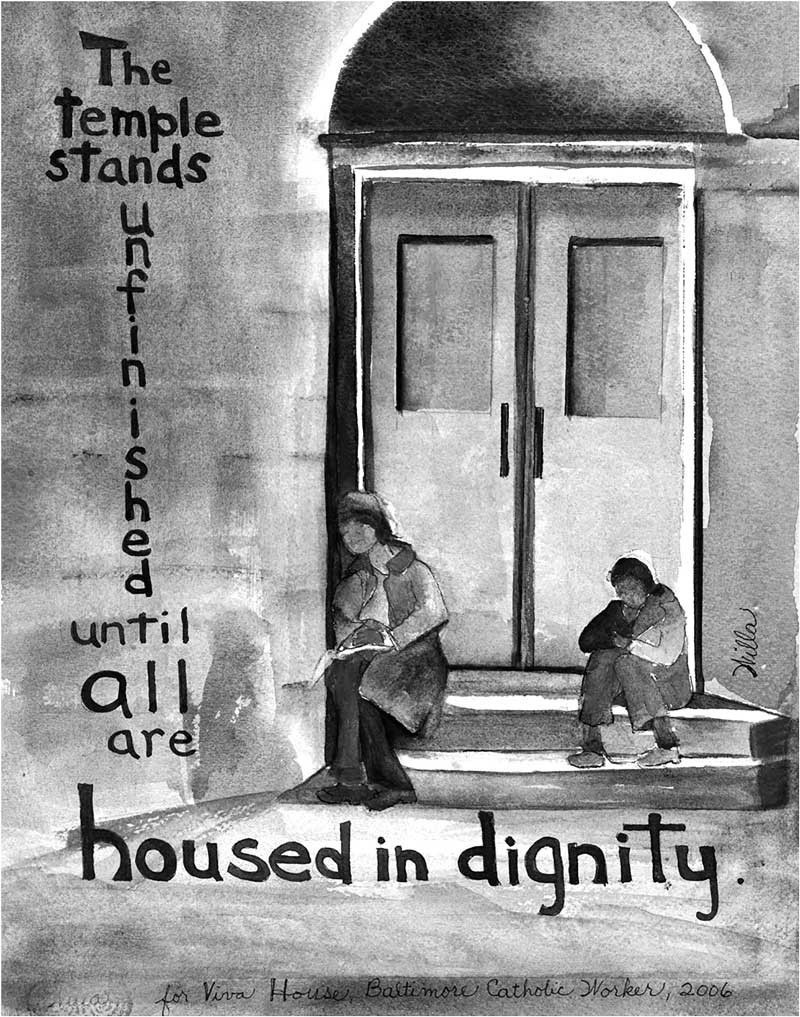 The
temple
stands
unfinished
until
all
are
housed in dignity.
Willa
for Viva House, Baltimore Catholic Worker, 2006